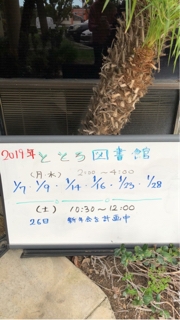 2019年 ととろ図書館
(月・水) 2:00～4:00
1/7・1/9・1/14・1/16・1/23・1/28
(土) 10:30～12:00
26日 新年会を計画中